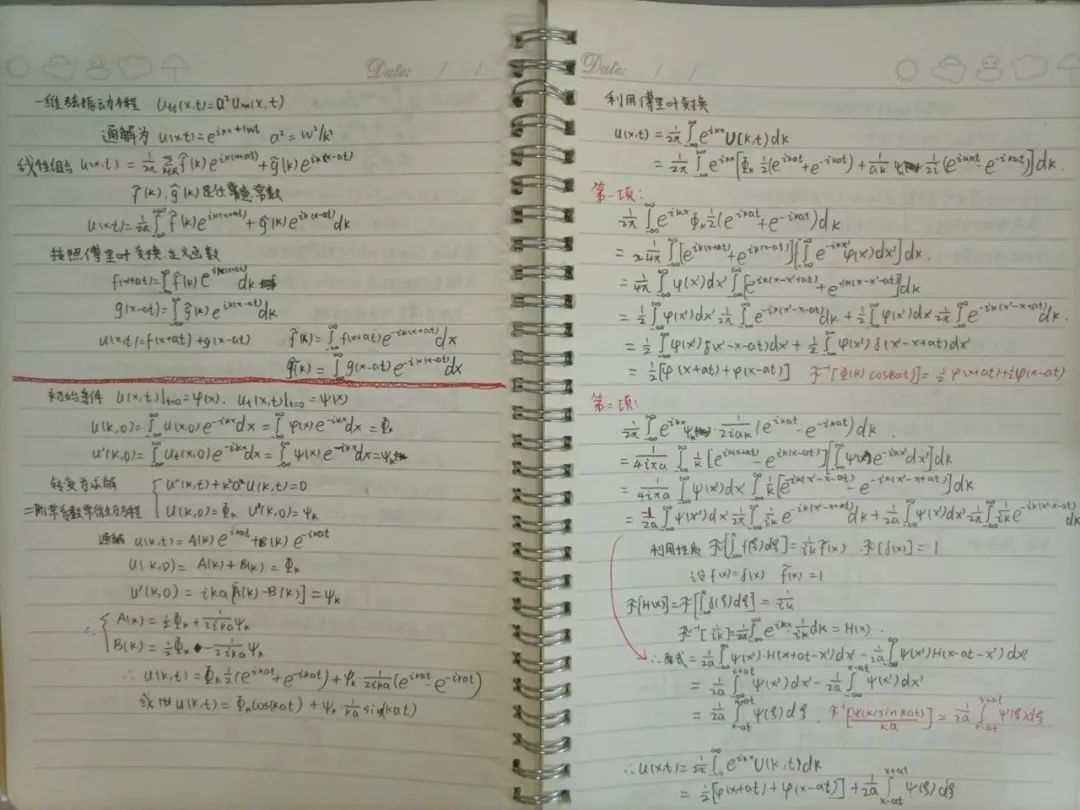 Date: / /
一维弦振动方程 U_tt(x,t)=a²U_xx(x,t)
通解为 u(x,t)=e^{ikx+iωt} a²=ω²/k²
线性组合 u(x,t)=1/2π Σ_{k∈R} f̂(k)e^{ik(x+at)}+ĝ(k)e^{ik(x-at)}
f̂(k), ĝ(k)是任意常数
u(x,t)=1/2π∫_{-∞}^{+∞} f̂(k)e^{ik(x+at)}+ĝ(k)e^{ik(x-at)}dk
按照傅里叶变换定义函数
f(x+at)=∫_{-∞}^{∞} f̂(k)e^{ik(x+at)}dk
g(x-at)=∫_{-∞}^{∞} ĝ(k)e^{ik(x-at)}dk
u(x,t)=f(x+at)+g(x-at) f̂(k)=∫_{-∞}^{∞} f(x+at)e^{-ik(x+at)}dx
ĝ(k)=∫_{-∞}^{∞} g(x-at)e^{-ik(x-at)}dx
初始条件 U(x,t)|_{t=0}=φ(x), U_t(x,t)|_{t=0}=ψ(x)
U(k,0)=∫_{-∞}^{∞} U(x,0)e^{-ikx}dx=∫_{-∞}^{∞} φ(x)e^{-ikx}dx=Φ_k
U'(k,0)=∫_{-∞}^{∞} U_t(x,0)e^{-ikx}dx=∫_{-∞}^{∞} ψ(x)e^{-ikx}dx=Ψ_k
转变为求解 { U''(k,t)+k²a²U(k,t)=0
二阶常系数常微分方程 U(k,0)=Φ_k U'(k,0)=Ψ_k
通解 U(k,t)=A(k)e^{ikat}+B(k)e^{-ikat}
U(k,0)=A(k)+B(k)=Φ_k
U'(k,0)=ika[A(k)-B(k)]=Ψ_k
∴ { A(k)=½Φ_k+1/(2ika)Ψ_k
B(k)=½Φ_k-1/(2ika)Ψ_k
∴ U(k,t)=Φ_k½(e^{ikat}+e^{-ikat})+Ψ_k·1/(2ika)(e^{ikat}-e^{-ikat})
U(k,t)=Φ_k cos(kat)+Ψ_k·1/(ka) sin(kat)
Date: / /
利用傅里叶变换
u(x,t)=1/2π∫_{-∞}^{∞} e^{ikx}U(k,t)dk
=1/2π∫_{-∞}^{∞} e^{ikx}[Φ_k½(e^{ikat}+e^{-ikat})+1/(ak)Ψ_k 1/(2i)(e^{ikat}-e^{-ikat})]dk.
第一项:
1/2π∫_{-∞}^{∞} e^{ikx}Φ_k½(e^{ikat}+e^{-ikat})dk.
=1/4π∫_{-∞}^{∞}[e^{ik(x+at)}+e^{ik(x-at)}][∫_{-∞}^{∞} e^{-ikx'}φ(x')dx']dk.
=1/4π∫_{-∞}^{∞} φ(x')dx'∫_{-∞}^{∞}[e^{ik(x-x'+at)}+e^{ik(x-x'-at)}]dk
=½∫_{-∞}^{∞} φ(x')dx' 1/2π∫_{-∞}^{∞} e^{-ik(x'-x-at)}dk+½∫_{-∞}^{∞} φ(x')dx 1/2π∫_{-∞}^{∞} e^{-ik(x'-x+at)}dk.
=½∫_{-∞}^{∞} φ(x')δ(x'-x-at)dx'+½∫_{-∞}^{∞} φ(x')δ(x'-x+at)dx'
=½[φ(x+at)+φ(x-at)] ℱ⁻¹[Φ(k)coskat)]=½φ(x+at)+½φ(x-at)
第二项:
1/2π∫_{-∞}^{∞} e^{ikx}Ψ_k·1/(2iak)(e^{ikat}-e^{-ikat})dk.
=1/(4iπa)∫_{-∞}^{∞} 1/k[e^{ik(x+at)}-e^{ik(x-at)}][∫_{-∞}^{∞} ψ(x')e^{-ikx'}dx']dk
=1/(4iπa)∫_{-∞}^{∞} ψ(x')dx'∫_{-∞}^{∞} 1/k[e^{-ik(x'-x-at)}-e^{-ik(x'-x+at)}]dk
=-1/2a∫_{-∞}^{∞} ψ(x')dx' 1/2π∫_{-∞}^{∞} 1/(ik)e^{-ik(x'-x+at)}dk+1/2a∫_{-∞}^{∞} ψ(x')dx' 1/2π∫_{-∞}^{∞} 1/(ik)e^{-ik(x'-x-at)}dk
利用性质 ℱ[∫_{-∞}^{x} f(ξ)dξ]=1/(ik)f̃(k) ℱ[δ(x)]=1
设f(x)=δ(x) f̃(x)=1
ℱ[H(x)]=ℱ[∫_{-∞}^{x} δ(ξ)dξ]=1/(ik)
ℱ⁻¹[1/(ik)]=1/2π∫_{-∞}^{∞} e^{ikx}·1/(ik)dk=H(x).
∴原式=1/2a∫_{-∞}^{∞} ψ(x')·H(x+at-x')dx'-1/2a∫_{-∞}^{∞} ψ(x')H(x-at-x')dx'
=1/2a∫_{-∞}^{x+at} ψ(x')dx'-1/2a∫_{-∞}^{x-at} ψ(x')dx'
=1/2a∫_{x-at}^{x+at} ψ(ξ)dξ. ℱ⁻¹[Ψ(k)sin kat)/(ka)]=1/2a∫_{x-at}^{x+at} ψ(ξ)dξ
∴u(x,t)=1/2π∫_{-∞}^{∞} e^{ikx}U(k,t)dk
=½[φ(x+at)+φ(x-at)]+1/2a∫_{x-at}^{x+at} ψ(ξ)dξ